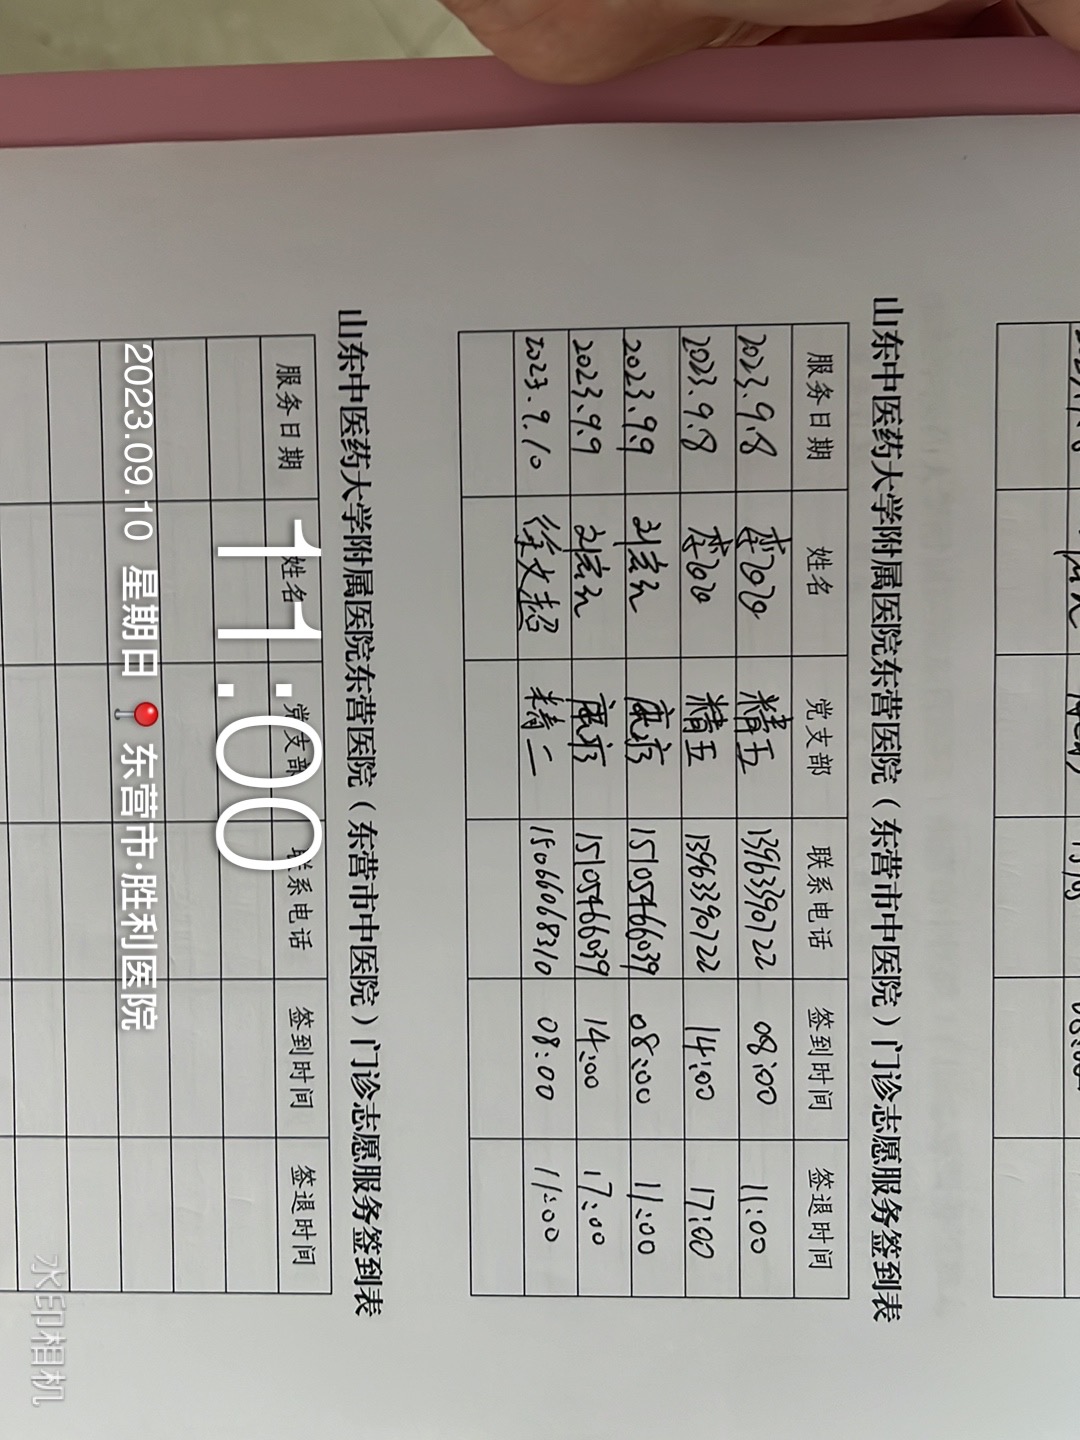 山东中医药大学附属医院东营医院（东营市中医院）门诊志愿服务签到表
服务日期 姓名 党支部 联系电话 签到时间 签退时间
2023.9.8 精五 13963390722 08:00 11:00
2023.9.8 精五 13963390722 14:00 17:00
2023.9.9 康疗 15105466039 08:00 11:00
2023.9.9 康疗 15105466039 14:00 17:00
2023.9.10 徐文超 精二 15066068310 08:00 11:00
山东中医药大学附属医院东营医院（东营市中医院）门诊志愿服务签到表
服务日期 姓名 党支部 联系电话 签到时间 签退时间
11:00
2023.09.10 星期日 东营市·胜利医院
水印相机